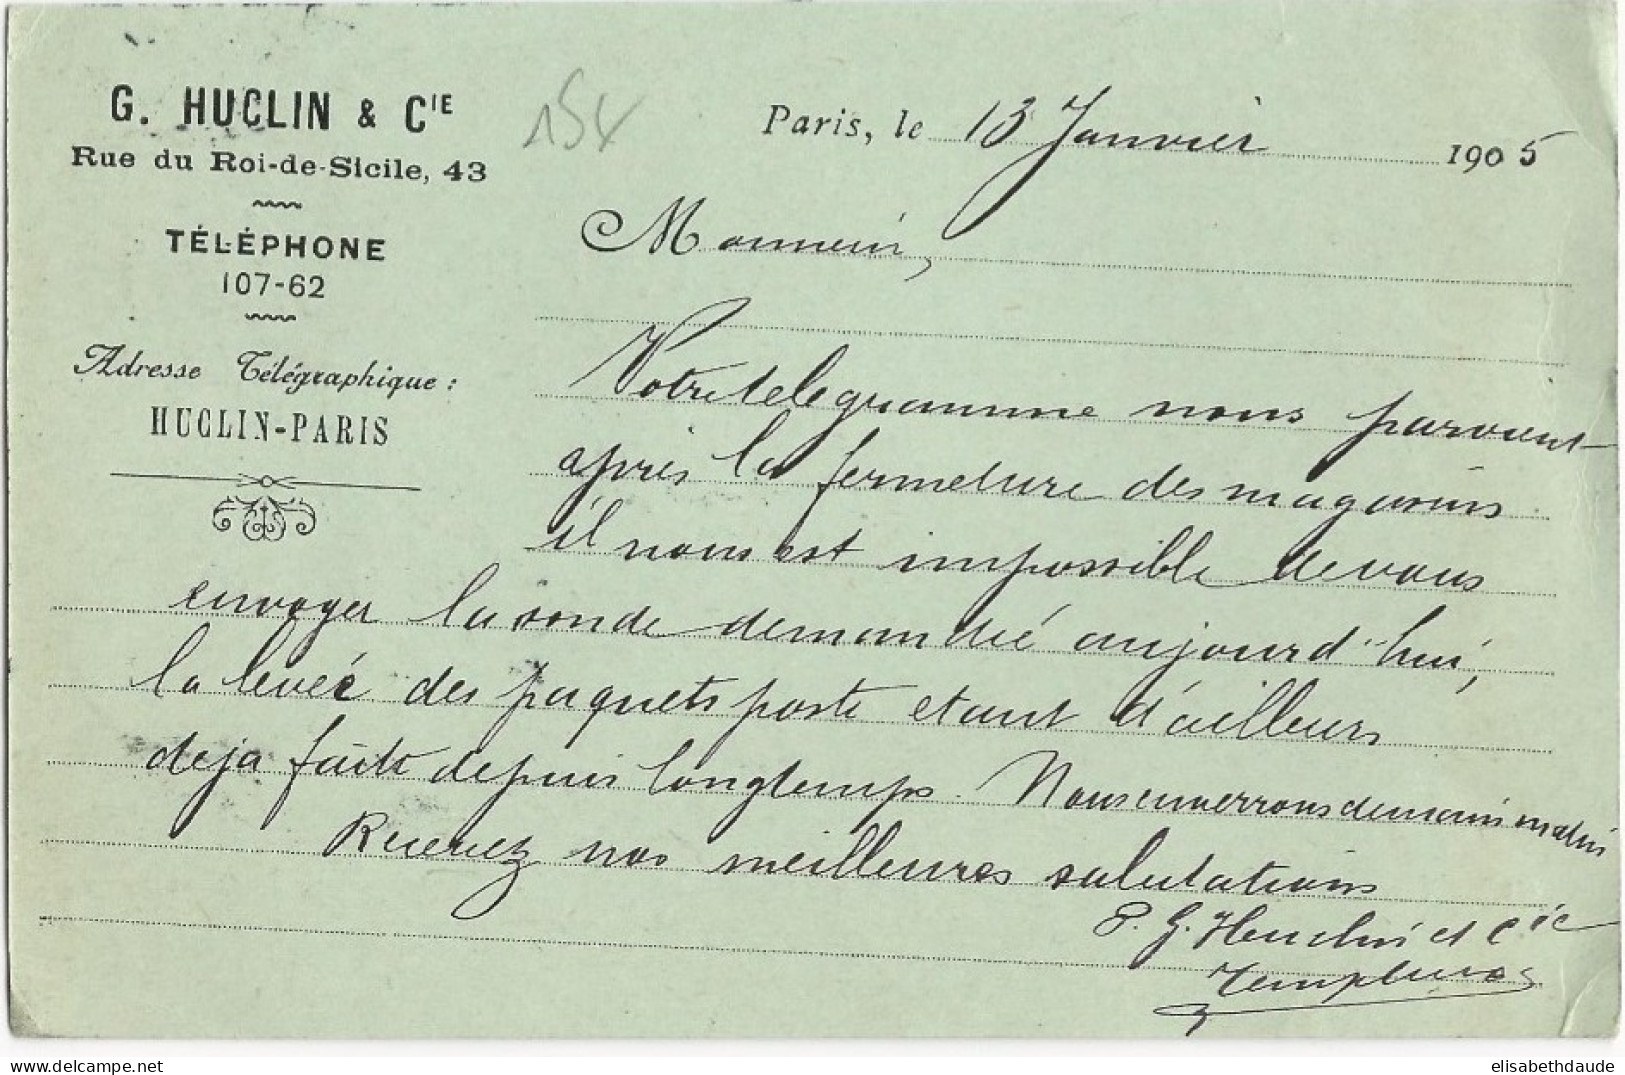 G. HUCLIN & CIE
Rue du Roi-de-Sicile, 43
TÉLÉPHONE
107-62
Adresse Télégraphique :
HUCLIN-PARIS
154
Paris, le 13 Janvier 1905
Monsieur,
Votre telegramme nous parvient
après la fermeture des magasins
il nous est impossible de vous
envoyer la sonde demandée aujourd'hui,
la levée des paquets poste etant d'ailleurs
deja faite depuis longtemps. Nous enverrons demain matin
Recevez nos meilleures salutations
P. G. Huclin et Cie
elisabethdaude